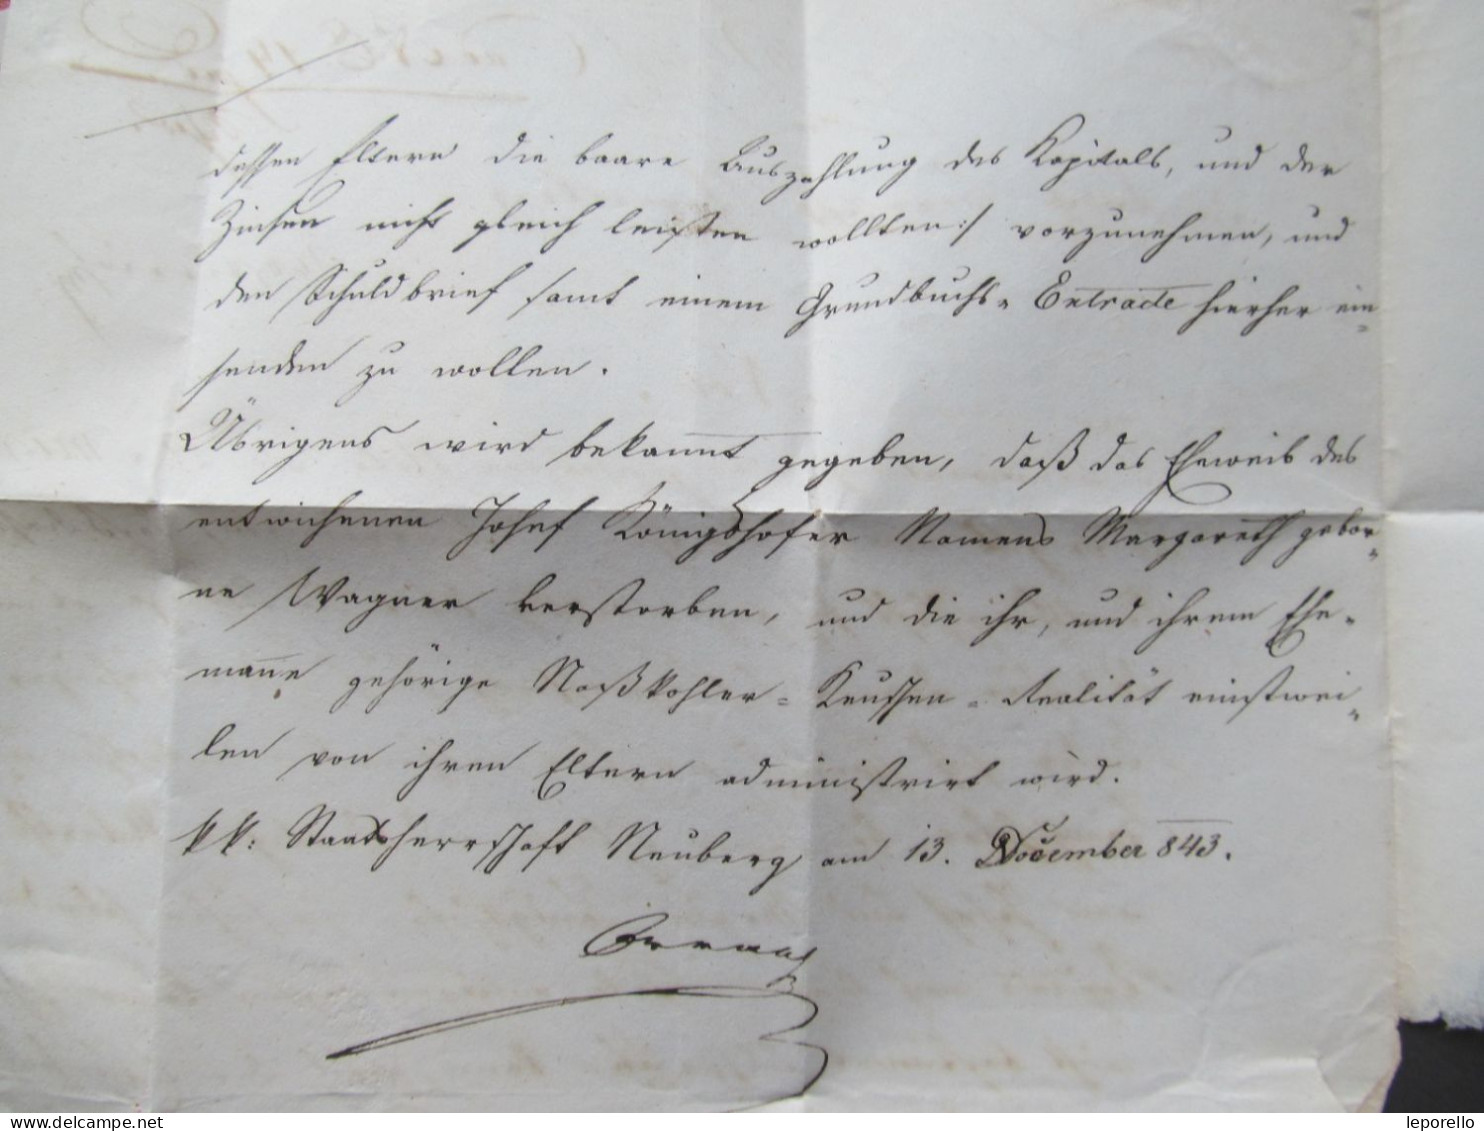 dessen Eltern die baare Auszahlung des Kapitals, und der
Zinsen nicht gleich leisten wollten :/ vorzunehmen, und
den Schuldbrief samt einem Grundbuchs=Extracte hierher ein=
senden zu wollen.
Übrigens wird bekannt gegeben, daß das Eheweib des
entwichenen Josef Königshofer Namens Margareth gebor=
ne Wagner verstorben, und die ihr, und ihrem Ehe=
manne gehörige Naßkohler=Keuschen=Realität einstwei=
len von ihren Eltern administrirt wird.
kk: Staatsherrschaft Neuberg am 13. November 843.
leporello